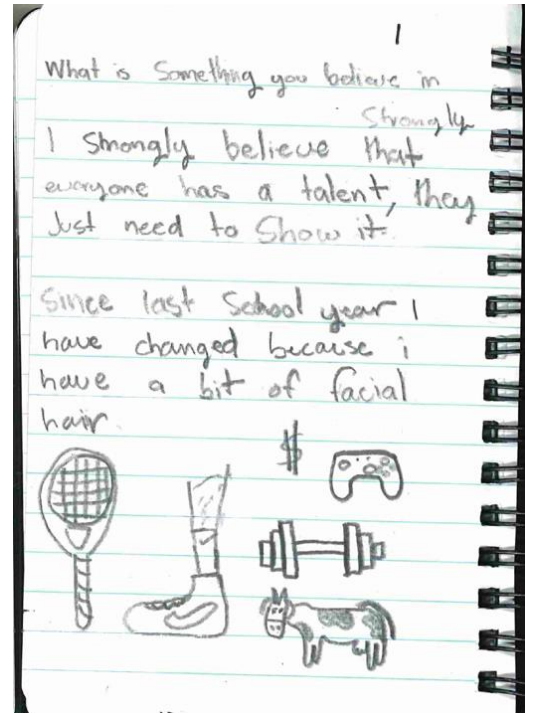 1
What is Something you believe in
Strongly
I strongly believe that
everyone has a talent, they
Just need to Show it.
Since last School year I
have changed because i
have a bit of facial
hair.
$